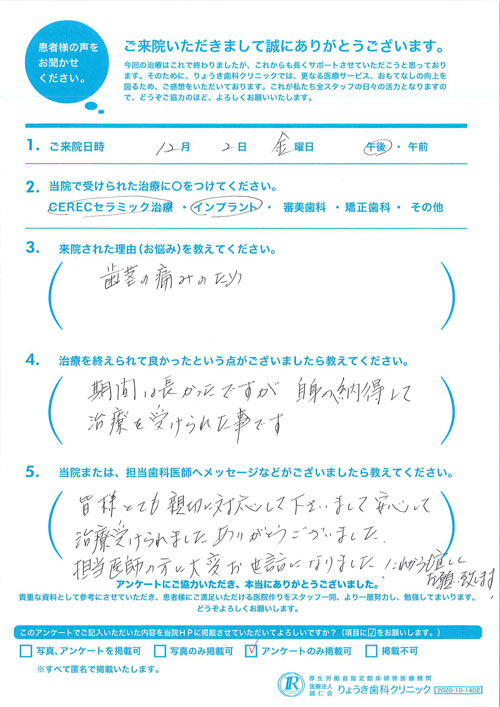 患者様の声を
お聞かせ
ください。
ご来院いただきまして誠にありがとうございます。
今回の治療はこれで終わりましたが、これからも長くサポートさせていただこうと思っており
ます。そのために、りょうき歯科クリニックでは、更なる医療サービス、おもてなしの向上を
図るため、ご感想をいただいております。これが私たち全スタッフの日々の活力となりますの
で、どうぞご協力のほど、よろしくお願いいたします。
1. ご来院日時 12月 2日 金曜日 午後・午前
2. 当院で受けられた治療に○をつけてください。
CERECセラミック治療・インプラント・審美歯科・矯正歯科・その他
3. 来院された理由(お悩み)を教えてください。
歯茎の痛みのため
4. 治療を終えられて良かったという点がございましたら教えてください。
期間は長かったですが 自身へ納得して
治療を受けられた事です
5. 当院または、担当歯科医師へメッセージなどがございましたら教えてください。
皆様とても親切に対応して下さいまして安心して
治療受けられました ありがとうございました.
担当医師の方に大変お世話になりました
お願い致します
アンケートにご協力いただき、本当にありがとうございました。
貴重な資料として参考にさせていただき、患者様にご満足いただける医院作りをスタッフ一同、より一層努力し、勉強してまいります。
どうぞよろしくお願いします。
このアンケートでご記入いただいた内容を当院HPに掲載させていただいてよろしいですか?(項目に☑をお願いします。)
□ 写真、アンケートを掲載可 □ 写真のみ掲載可 ☑ アンケートのみ掲載可 □ 掲載不可
※すべて匿名で掲載いたします。
厚生労働省指定臨床研修医療機関
医療法人
誠仁会
りょうき歯科クリニック
2020-10-1402